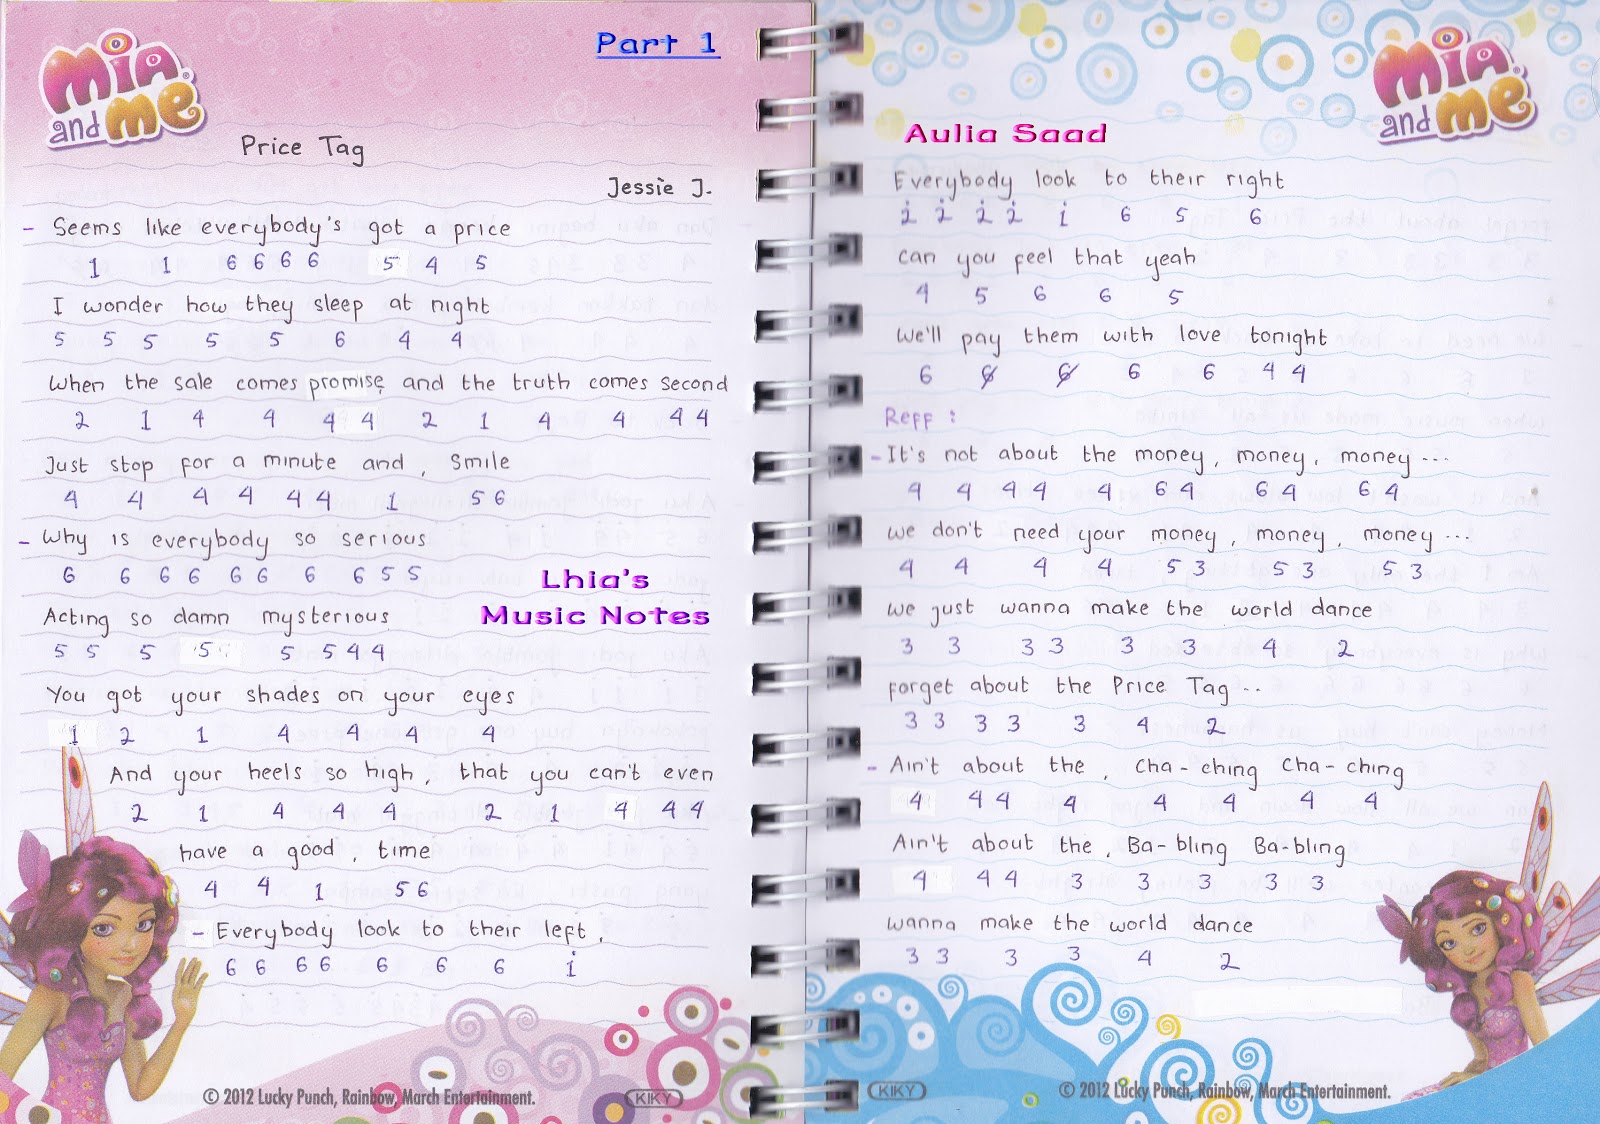 Part 1
mia and me
Price Tag
Jessie J.
- Seems like everybody's got a price
1 1 6 6 6 6 5 4 5
I wonder how they sleep at night
5 5 5 5 5 6 4 4
When the sale comes promise and the truth comes second
2 1 4 4 4 4 2 1 4 4 4 4
Just stop for a minute and , smile
4 4 4 4 4 4 1 5 6
- Why is everybody so serious
6 6 6 6 6 6 6 6 5 5
Lhia's
Music Notes
Acting so damn mysterious
5 5 5 5 5 5 4 4
You got your shades on your eyes
1 2 1 4 4 4 4
And your heels so high , that you can't even
2 1 4 4 4 2 1 4 4 4
have a good , time
4 4 1 5 6
- Everybody look to their left ,
6 6 6 6 6 6 6 i
© 2012 Lucky Punch, Rainbow, March Entertainment.
KIKY
mia and me
Aulia Saad
Everybody look to their right
2̇ 2̇ 2̇ 2̇ i 6 5 6
can you feel that yeah
4 5 6 6 5
We'll pay them with love tonight
6 6 6 6 6 4 4
Reff :
- It's not about the money , money , money ...
4 4 4 4 4 6 4 6 4 6 4
we don't need your money , money , money ...
4 4 4 4 5 3 5 3 5 3
we just wanna make the world dance
3 3 3 3 3 3 4 2
forget about the Price Tag ..
3 3 3 3 3 4 2
- Ain't about the , Cha - ching Cha - ching
4 4 4 4 4 4 4 4
Ain't about the , Ba - bling Ba - bling
4 4 4 3 3 3 3 3
wanna make the world dance
3 3 3 3 4 2
© 2012 Lucky Punch, Rainbow, March Entertainment.
KIKY